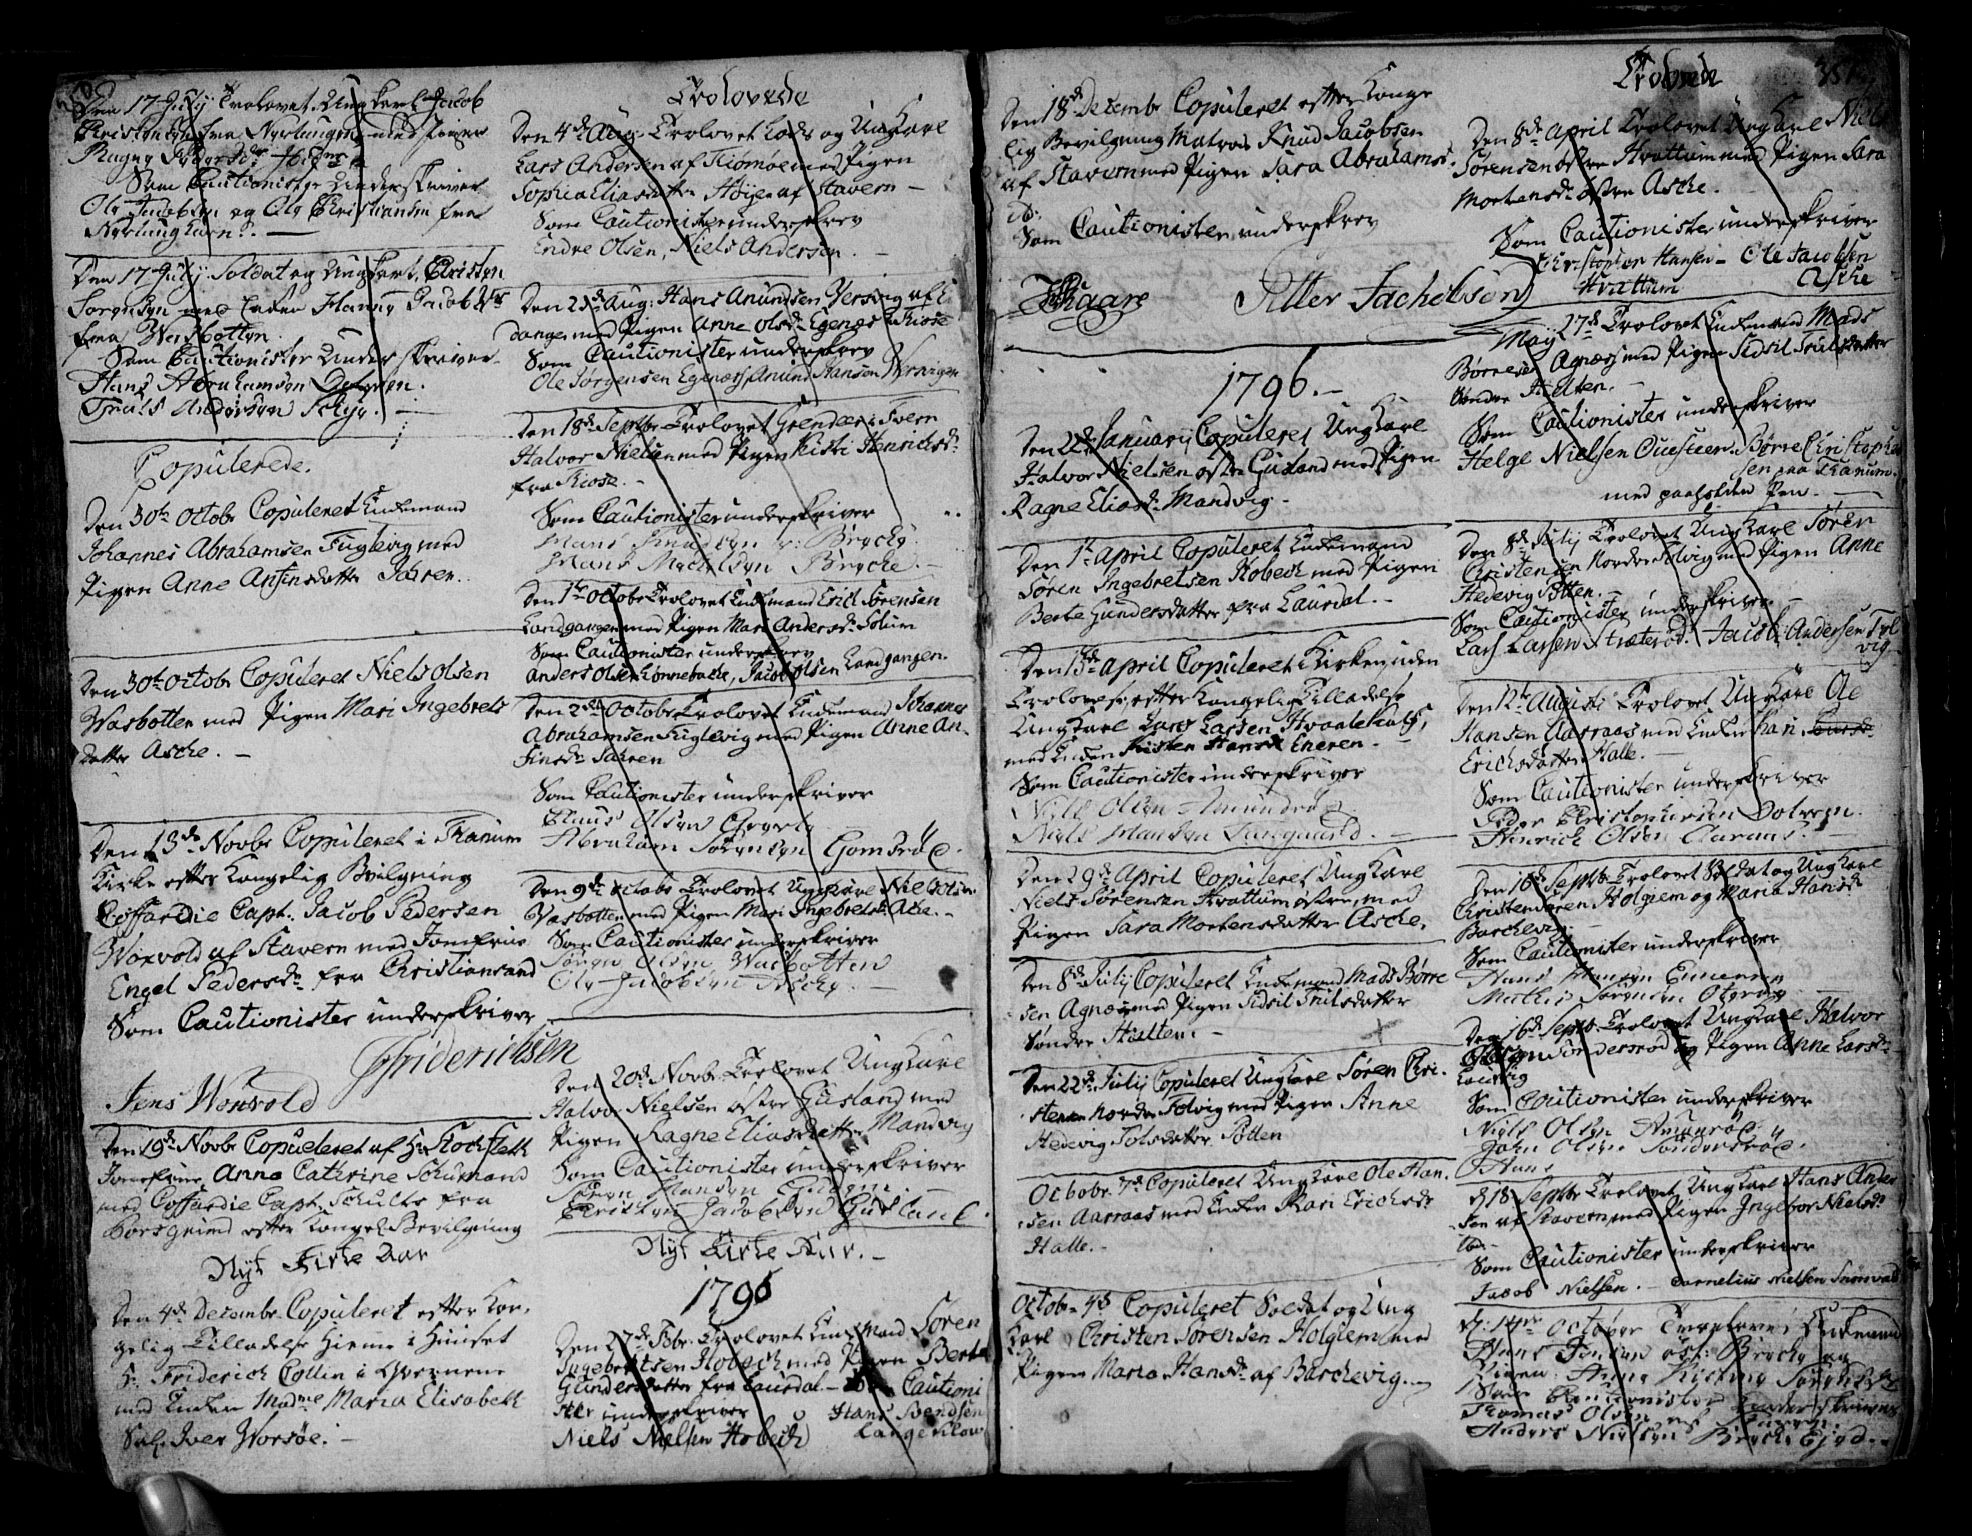 350
Den 17 July Trolovet Ungkarl Jacob
Christensen fra Nyrlungen med Pigen
Ragne
Som Cautionister Underskriver
Ole Jacobsen og Ole Christiansen fra
Den 17 July Soldat og Ungkarl Christen
Sørensen med Enken Hanne Jacobsdr
fra Wasbotten.
Som Cautionister Underskriver
Hans Abrahamsen
Truls Andersen
Copulerede.
Den 30te Octobr Copuleret Enkemand
Johannes Abrahamsen Fuglevig med
Pigen Anne Anfinsdatter Jahren.
Den 30te Octobr Copuleret Niels Olsen
Wasbotten med Pigen Mari Ingebrets
datter Asche. –
Den 13de Novbr Copuleret i Thanum
Kirke efter Kongelig Bevilgning
Coffardie Capt: Jacob Pedersen
Worvold af Stavern med Jomfrue
Engel Pedersdr fra Christiansand
Som Cautionister underskriver
Friderichsen
Jens Worvold
Den 19de Novbr Copuleret af Hr Stockfleth
Jomfrue Anna Cathrine Schumand
med Coffardie Capt: Schults fra
Porsgrund efter Kongel. Bevilgning
Nyt Kirke Aar
Den 4de Decembr Copuleret efter Kon-
gelig Tilladelse hieme i Huuset
Hr Friderich Collin i
med Enken Madme Maria Elisabeth
Sal. Iver Worsøe. –
Trolovede
Den 4de Aug: Trolovet Lods og Ungkarl
Lars Andersen af Tiømøe med Pigen
Sophia Eliasdatter Høyer af Stavern –
Som Cautionister underskrev
Endre Olsen, Niels Andersen. –
Den 25de Aug: Hans Anundsen Vervig af
danger med Pigen Anne Olsdr Egenæs i Kiose
Som Cautionister underskrev
Ole Jørgensen Egenæs Anund Hansen Wrangen
Den 18de Septbr Trolovet Grenader i Tvern
Halvor Nielsen med Pigen Kisti Henrichsdr
fra Kiose. –
Som Cautionister underskriver
Mans Knudsen Brøche
Mans Brøche. –
Den 1te Octobr Trolovet Enkemand Erich Sørensen
Landgangen med Pigen Mari Andersdr Solum
Som Cautionister underskrev
Anders Olsen Lønnebache, Jacob Olsen Landgangen.
Den 2de Octobr Trolovet Enkemand Johannes
Abrahamsen Fuglevig med Pigen Anne An-
finsdr Jahren
Som Cautionister underskriver
Claus Olsen
Abraham Sørensen Gomsrød.
Den 9de Octobr Trolovet Ungkarl Niels Olsen
Vasbotten med Pigen Mari Ingebretsdr Asche. –
Som Cautionister underskriver
Søren Olsen Wasbotten
Ole Jacobsen Asche. –
Den 20de Novbr Trolovet Ungkarl
Halvor Nielsen østre Gusland med
Pigen Ragne Eliasdatter Mandvig
Som Cautionister underskriver
Søren Hansen
Christen Jacobsen Gusland.
Nyt Kirke Aar. –
1796
Den 27de Trolovet Enkemand Søren
Ingebretsen Hobech med Pigen Berte
Gundersdatter fra Laurdal – Som Cautioni
ster underskriver Hans Bendsen
Niels Nielsen Hobech Langeschow
Den 18de Decembr Copuleret efter Konge
lig Bevilgning Matros Knud Jacobsen
af Stavern med Pigen Sara Abrahams
dr.
Som Cautionister underskrev
Skaare Peter Jachobsen
1796. –
Den 22de January Copuleret Ungkarl
Halvor Nielsen østre Gusland med Pigen
Ragne Eliasdr Mandvig –
Den 1te April Copuleret Enkemand
Søren Ingebretsen Hobech med Pigen
Berte Gundersdatter fra Laurdal. –
Den 15de April Copuleret i Kirken uden
Trolovelse efter Kongelig Tilladelse
Ungkarl Lars Larsen Hvaale
med Enken Kisten Hansdr Eneren. –
Som Cautionister underskriver
Niels Olsen Amundrød
Niels Hansen
Den 29de April Copuleret Ungkarl
Niels Sørensen Hvattum østre, med
Pigen Sara Mortensdatter Asche.
Den 8de July Copuleret Enkemand Mads Børre
sen Agnæs med Pigen Sidsil Trulsdatter
Søndre Holten. –
Den 22de July Copuleret Ungkarl Søren Chri-
stensen Nordre Tolvig med Pigen Anne
Hedevig Tolsdatter Potten
Octobr 7de Copuleret Ungkarl Ole Han-
sen Aarraas med Enken Kari Erichsdr
Halle. –
Octobr 7de Copuleret Soldat og Ung
Karl Christen Sørensen Holgiem med
Pigen Maria Hansdr af Barchevig. –
Trolovede 351
Den 8de April Trolovet Ungkarl Niels
Sørensen østre Hvattum med Pigen Sara
Mortensdr østre Asche.
Som Cautionister underskriver
Christopher Hansen – Ole Jacobsen
Hvattum Asche
May 27de Trolovet Enkemand Mads
Børresen Agnæss med Pigen Sidsil Trulsdatter
Søndre Holten. –
Som Cautionister underskriver
Helge Nielsen Ouesteen. Børre Christopher
sen paa Thanum.
med paaholden Pen. –
Den 8de July Trolovet Ungkarl Søren
Christensen Nordre Tolvig med Pigen Anne
Hedevig Potten. –
Som Cautionister underskriver –
Lars Larsen Stræterød. Jacob Andersen Tol
vig
Den 12te Augusti Trolovet Ungkarl Ole
Hansen Aarraas med Enken Kari
Erichsdatter Halle. –
Som Cautionister underskriver
Peder Christophersen Dolven.
Henrich Olsen Aaraas. –
Den 16de Septbr Trolovet Soldat og Ungkarl
Christen Søren Holgiem og Maria Hansdr
Barchevig. –
Som Cautionister underskriver
Hans Hansen Enneren
Mathis Sørensen
Den 16de Septbr Trolovet Ungkarl Halvor
Olsen Søndersrød og Pigen Anne Larsdr
Laurvig
Som Cautionister underskriver
Niels Olsen Amunrød
John Olsen Søndersrød.
Hans
D 18 Septbr Trolovet Ungkarl Hans Ander
sen af Stavern med Pigen Ingebor Nielsdr
Som Cautionister underskriver
Jacob Nielsen. – Cornelius Nielsen
D: 14de October Trolovet Enkemand
Hans Jensen øst: Brøche og
Pigen Anne Kistine Sørensdr
Som Cautionister Underskriver
Thomas Olsen
Anders Nielsen Brøche Ejed. –